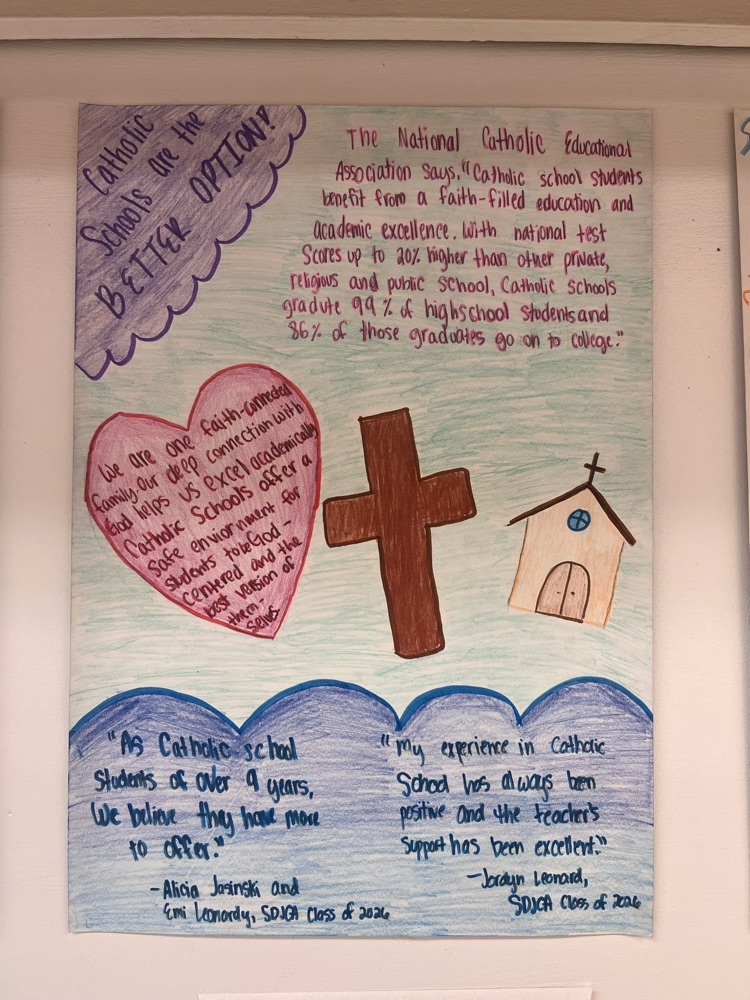 Catholic
Schools are the
BETTER OPTION!
The National Catholic Educational
Association says, "Catholic school students
benefit from a faith-filled education and
academic excellence. With national test
Scores up to 20% higher than other private,
religious and public school, Catholic schools
gradute 99% of highschool students and
86% of those graduates go on to college."
We are one faith-connected
family. Our deep connection with
God helps us excel academically
Catholic Schools offer a
safe enviornment for
students to be God-
centered and the
best version of
them-
selves
"As Catholic school
students of over 9 years,
we believe they have more
to offer."
-Alicia Jasinski and
Emi Leonardy, SDJCA Class of 2026
"My experience in Catholic
School has always been
positive and the teacher's
support has been excellent."
-Jordyn Leonard,
SDJCA Class of 2026